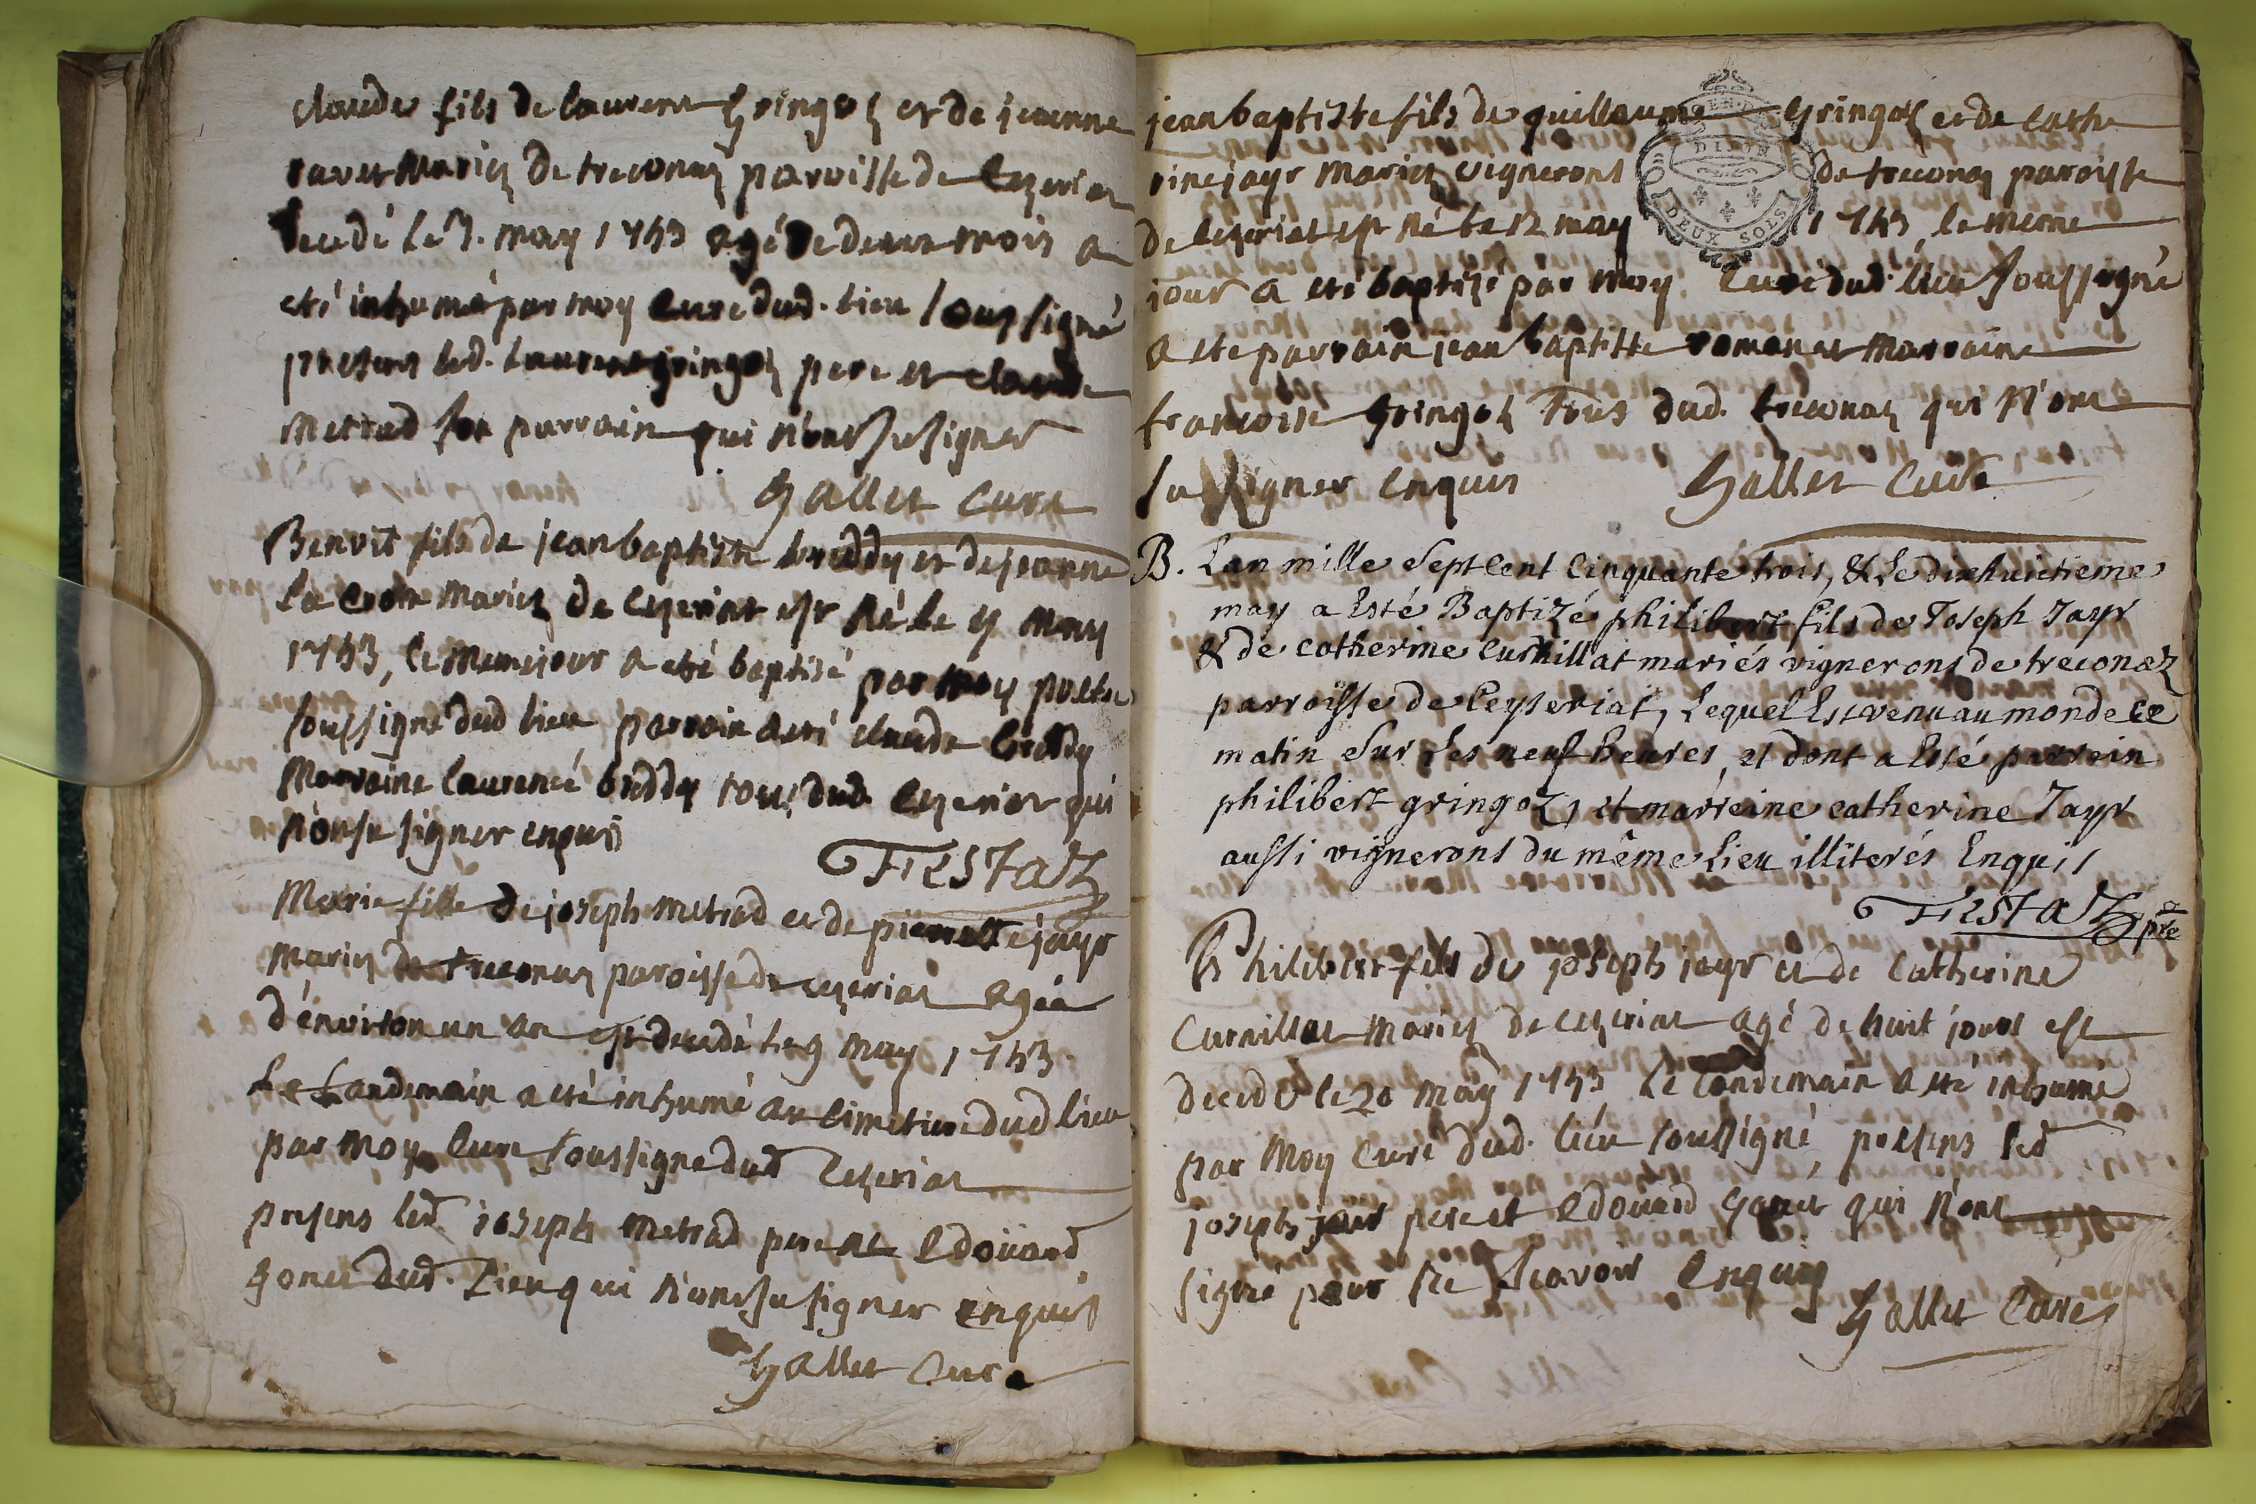 claude fils de laurent gringoz et de jeanne
ravet mariez de treconaz parroisse de Cezeriat
decedé le 7. may 1753 agé de deux mois a
eté inhumé par moy curé dud. lieu soussigné
presens led. laurent gringoz pere et claude
metrad son parrain qui n'ont su signer
Gallet curé
Benoit fils de jean baptiste breddy et de jeanne
la croix mariez de cezeriat est né le 9 may
1753, le meme jour a eté baptisé par moy pretre
soussigné dud lieu parrain a eté claude breddy
marraine laurence breddy tous dud. cezeriat qui
n'ont su signer enquis
Testaz
Marie fille de joseph metrad et de pierrette jayr
mariez de treconaz paroisse de cezeriat agée
d'environ un an est decedé le 9 may 1753.
Le Landemain a eté inhumé au cimetiere dud lieu
par moy curé soussigné dud Cezeriat
presens led. joseph metrad pere et edoüard
gonet dud. lieu qui n'ont su signer enquis
Gallet curé
jean baptiste fils de guillaume gringoz et de cathe
rine jayr mariez vignerons de treconaz paroisse
de cezeriat est né le 12 may 1753, le meme
jour a eté baptizé par moy curé dud. lieu soussigné
a eté parrain jean baptiste romanet marraine
francoise gringoz Tous dud. treconaz qui n'ont
su signer enquis Gallet curé
DIJON
DEUX SOLS
B. Lan mille Sept Cent Cinquante trois, & Le dixhuictieme
may a Esté Baptizé philibert fils de Joseph Jayr
& de catherine Curnillat mariés vignerons de treconaz
parroisse de Ceyseriat, Lequel Est venu au monde ce
matin Sur Les neuf heures, et dont a Esté parrein
philibert gringoz, et marreine catherine Jayr
aussi vignerons du même Lieu illiterés Enquis
Testaz pre
Philibert fils de joseph jayr et de Catherine
Curnillat mariez de cezeriat agé de huit jours est
decedé le 20 may 1753 le Landemain a eté inhumé
par moy curé dud. lieu soussigné, presens led
joseph jayr pere et edouard gonet qui n'ont
signé pour ne scavoir enquis
Gallet Curé